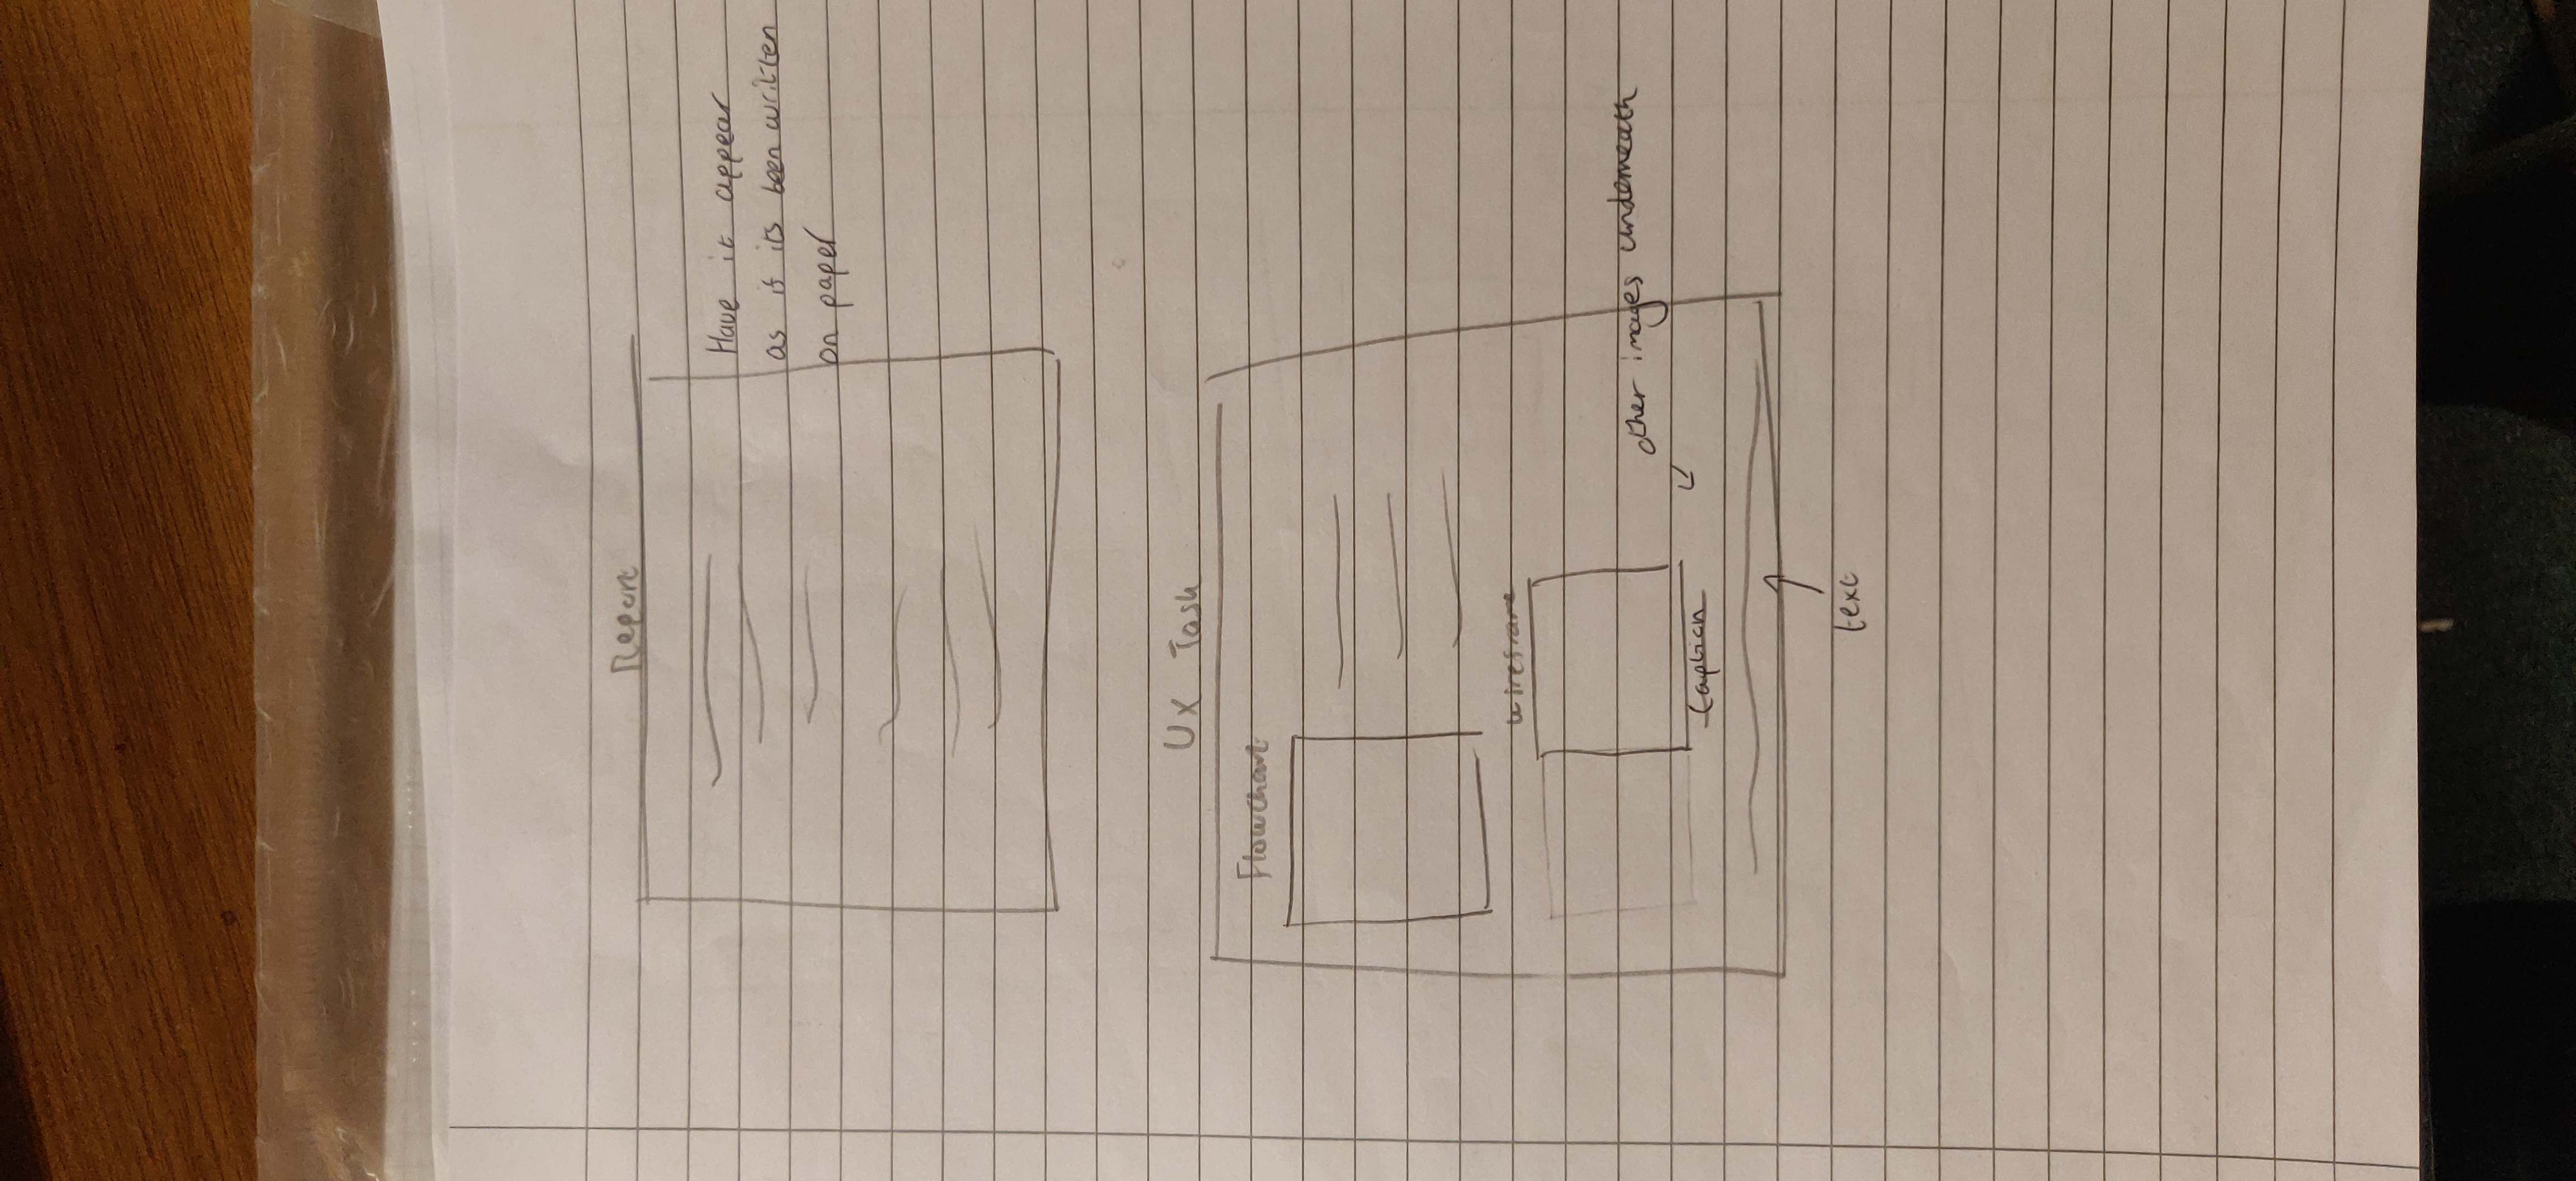 Report
Have it appear
as if its been written
on paper
UX Task
Flowchart
wireframe
other images underneath
Caption
text